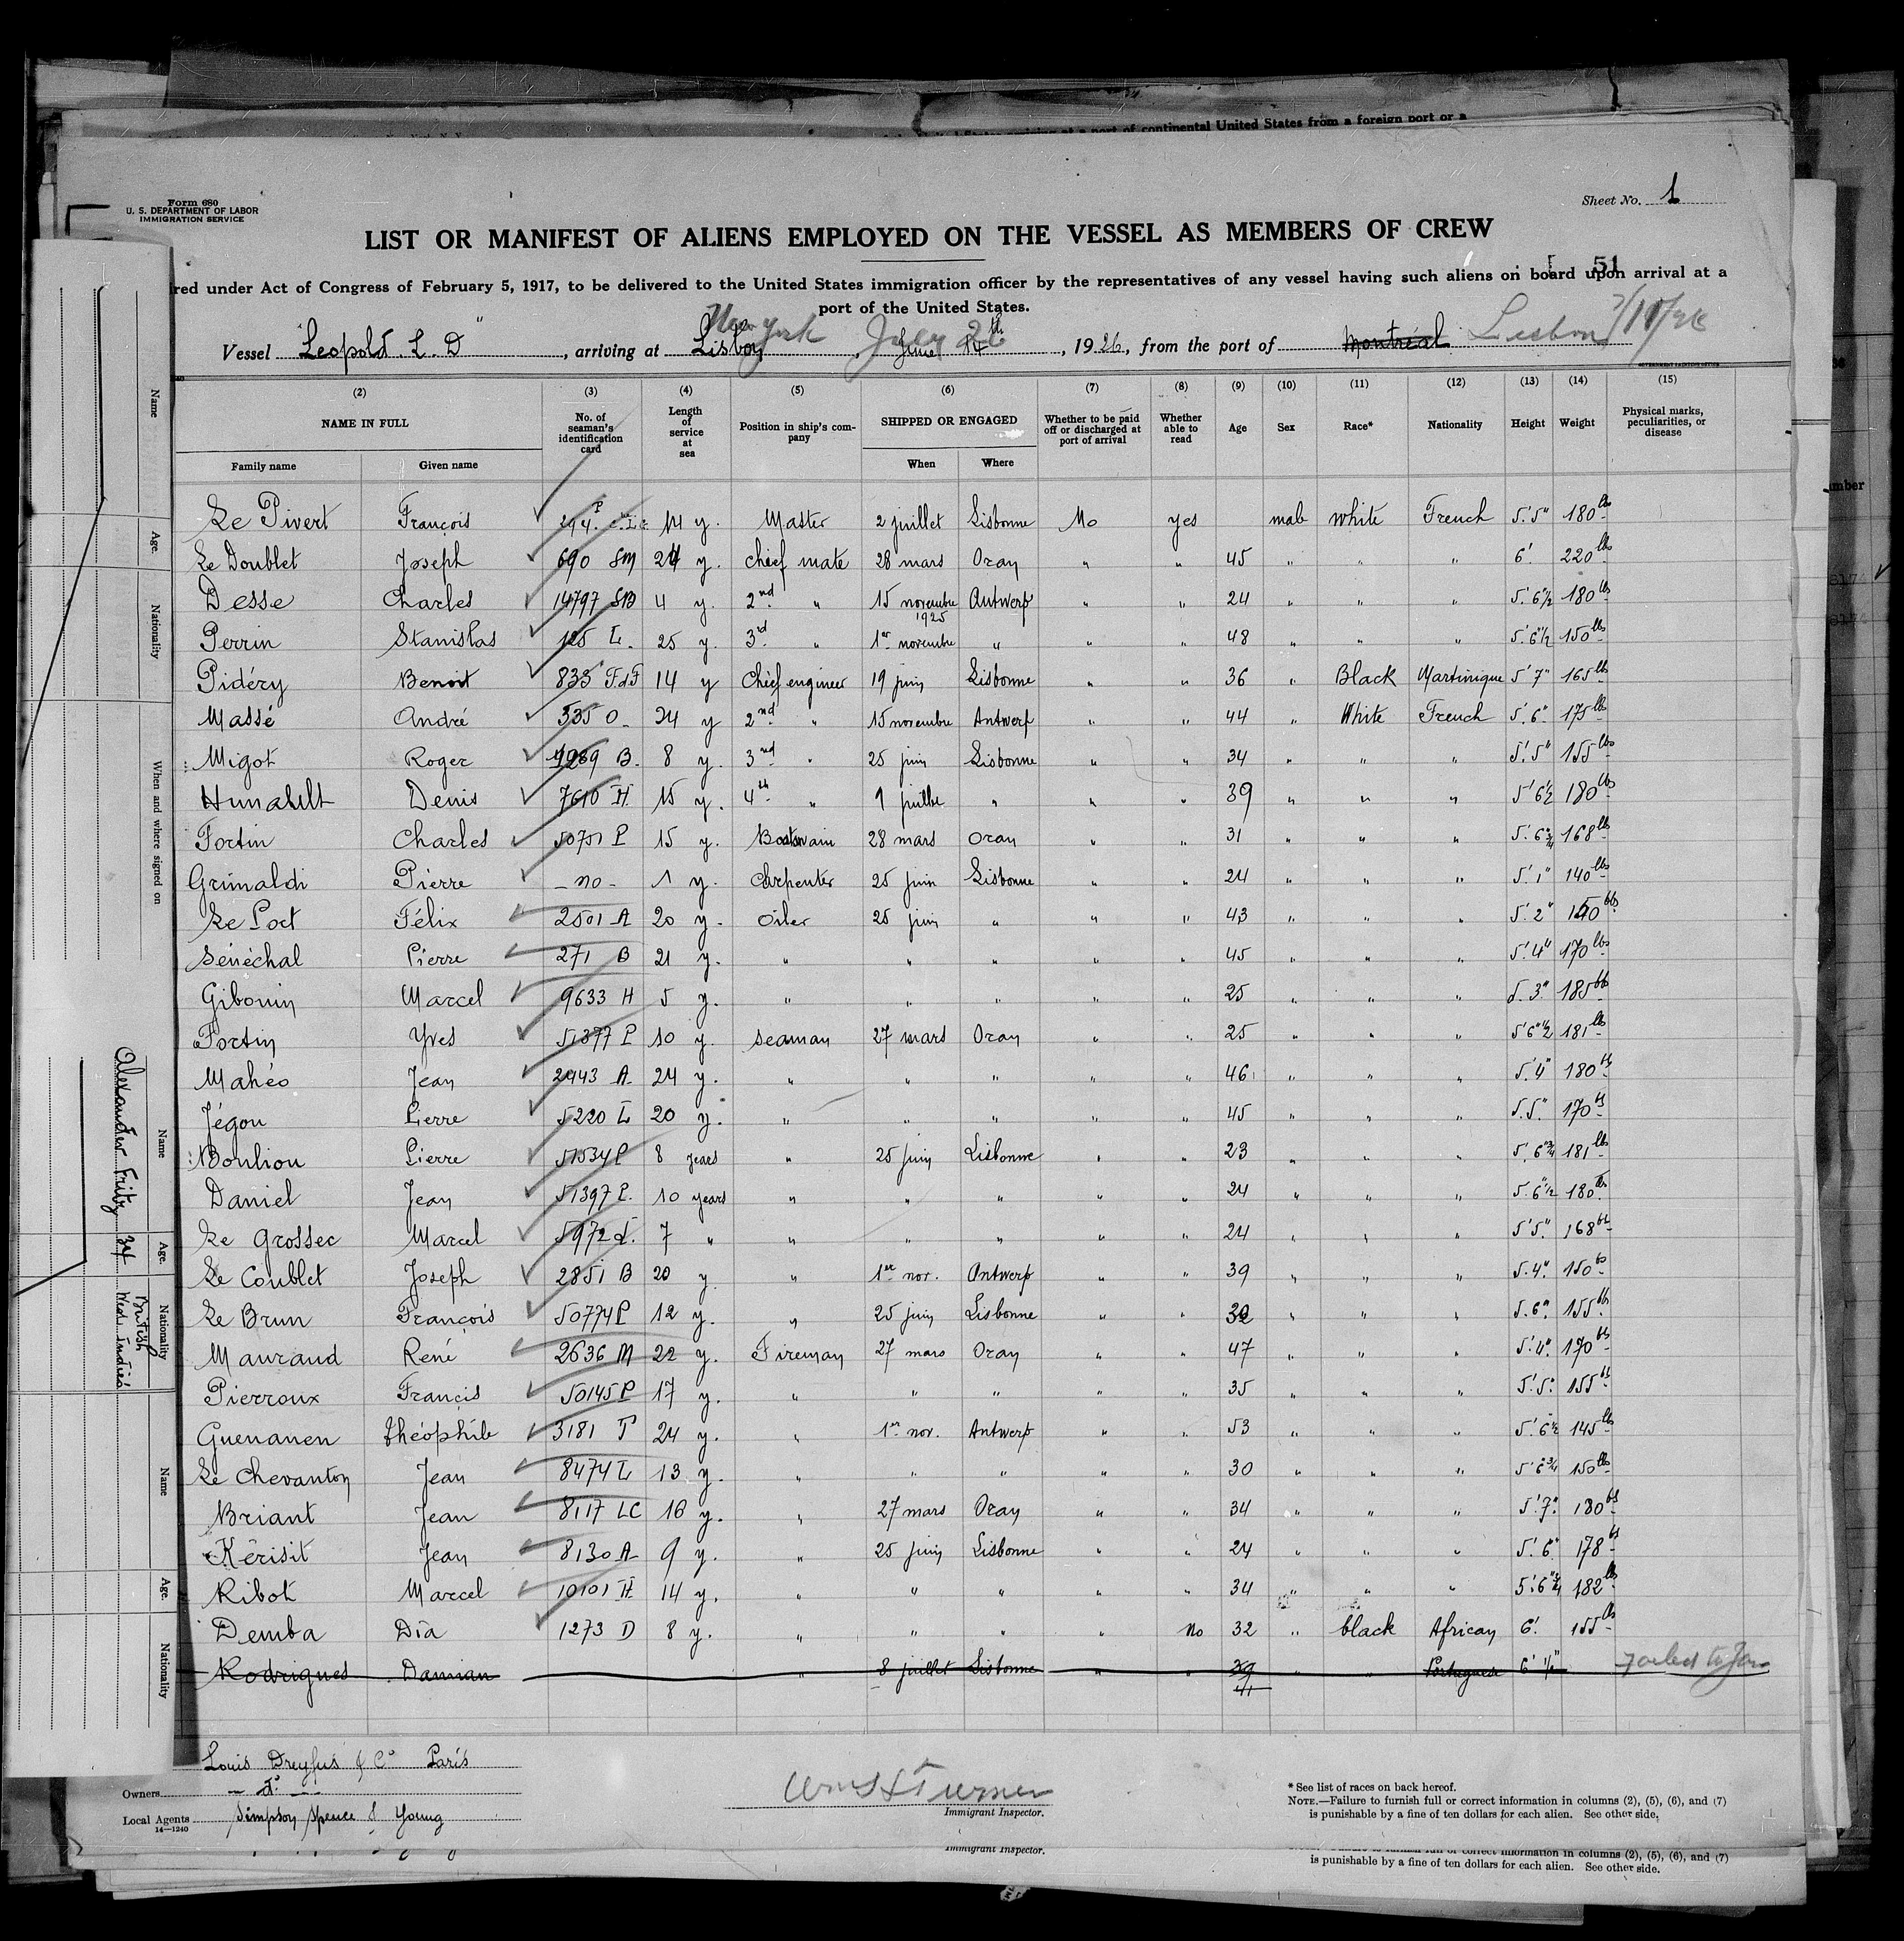 Form 680
U. S. DEPARTMENT OF LABOR
IMMIGRATION SERVICE
Sheet No. 1
LIST OR MANIFEST OF ALIENS EMPLOYED ON THE VESSEL AS MEMBERS OF CREW
51
red under Act of Congress of February 5, 1917, to be delivered to the United States immigration officer by the representatives of any vessel having such aliens on board upon arrival at a
port of the United States.
Vessel "Leopold. L. D", arriving at Lisbon New York, June 14 July 26th, 1926, from the port of Montréal Lisbon
(2) (3) (4) (5) (6) (7) (8) (9) (10) (11) (12) (13) (14) (15)
NAME IN FULL No. of seaman's identification card Length of service at sea Position in ship's company SHIPPED OR ENGAGED Whether to be paid off or discharged at port of arrival Whether able to read Age Sex Race* Nationality Height Weight Physical marks, peculiarities, or disease
Family name Given name When Where
Le Pivert François 14 y. Master 2 juillet Lisbonne No yes male White French 5'.5" 180 lbs
Le Doublet Joseph 690 SM 24 y. chief mate 28 mars Oran " " 45 " " " 6'. 220 lbs
Desse Charles 14797 SB 4 y. 2nd " 15 novembre 1925 Antwerp " " 24 " " " 5'.6"1/2 180 lbs
Perrin Stanislas 125 L. 25 y. 3d " 1er novembre " " " 48 " " " 5'.6"1/2 150 lbs
Pidéry Benoit 835 F.d.F 14 y Chief engineer 19 juin Lisbonne " " 36 " Black Martinique 5'7" 165 lbs
Massé André 535 O. 24 y 2nd " 15 novembre Antwerp " " 44 " White French 5'.6" 175 lbs
Migot Roger 9289 B. 8 y. 3nd " 25 juin Lisbonne " " 34 " " " 5'.5" 155 lbs
Denis 7610 H 15 y. 4th " 1 juillet " " " 39 " " " 5'6 1/2 180 lbs
Fortin Charles 50751 P 15 y. 28 mars Oran " " 31 " " " 168 lbs
Grimaldi Pierre - no - 1 y. Carpenter 25 juin Lisbonne " " 24 " " " 5'.1" 140 lbs
Le Port Félix 2501 A 20 y. Oiler 25 juin " " " 43 " " " 5'.2" 150 lbs
Sénéchal Pierre 271 B 21 y. " " " " " 45 " " " 5'.4" 170 lbs
Gibouin Marcel 9633 H 5 y. " " " " " 25 " " " 5.3" 185 lbs
Fortin Yves 51377 P 10 y. seaman 27 mars Oran " " 25 " " " 5'6"1/2 181 lbs
Mahéo Jean 2443 A. 24 y. " " " " " 46 " " " 5'.4" 180 lbs
Jégou Pierre 5220 L 20 y. " " " " " 45 " " " 5.5". 170 lbs
Bouliou Pierre 51534 P 8 years " 25 juin Lisbonne " " 23 " " " 5'.6"3/4 181 lbs
Daniel Jean 51397 P. 10 years " " " " " 24 " " " 5.6"1/2 180 lbs
Le Grossec Marcel 5972 L. 7 " " " " " " 24 " " " 5'5". 168 lbs
Le Coublet Joseph 2851 B 20 y. " 1er nov. Antwerp " " 39 " " " 5.4". 150 lbs
Le Brun François 50774 P 12 y. " 25 juin Lisbonne " " 32 " " " 5.6". 155 lbs
Mauraud René 2636 M 22 y. Fireman 27 mars Oran " " 47 " " " 5'.4". 170 lbs
Pierroux Francis 50145 P 17 y. " " " " " 35 " " " 5'.5". 155 lbs
Guenanen théophile 3181 T 24 y. " 1er nov. Antwerp " " 53 " " " 5'.6 1/2 145 lbs
Le Chevanton Jean 8474 L 13 y. " " " " " 30 " " " 5'6"3/4 150 lbs
Briant Jean 8117 LC 16 y. " 27 mars Oran " " 34 " " " 5'.7". 180 lbs
Kérisit Jean 8130 A 9 y. " 25 juin Lisbonne " " 24 " " " 5'.6". 178 lbs
Ribot Marcel 10101 H 14 y. " " " " " 34 " " " 182 lbs
Demba Dia 1273 D 8 y. " " " " No 32 " black African 6'. 155 lbs
Rodrigues Damian " 8 juillet Lisbonne " " 41 " " Portuguese 6' 1/2" Failed to Join
Louis Dreyfus & Co Paris
Owners - do -
Local Agents Simpson Spence & Young
14—1240
Immigrant Inspector.
* See list of races on back hereof.
NOTE.—Failure to furnish full or correct information in columns (2), (5), (6), and (7)
is punishable by a fine of ten dollars for each alien. See other side.
Immigrant Inspector.
is punishable by a fine of ten dollars for each alien. See other side.
Name
Age.
Nationality
When and where signed on
Name Alexander Fritz
Age. 34
Nationality British West Indies
Name
Age.
Nationality